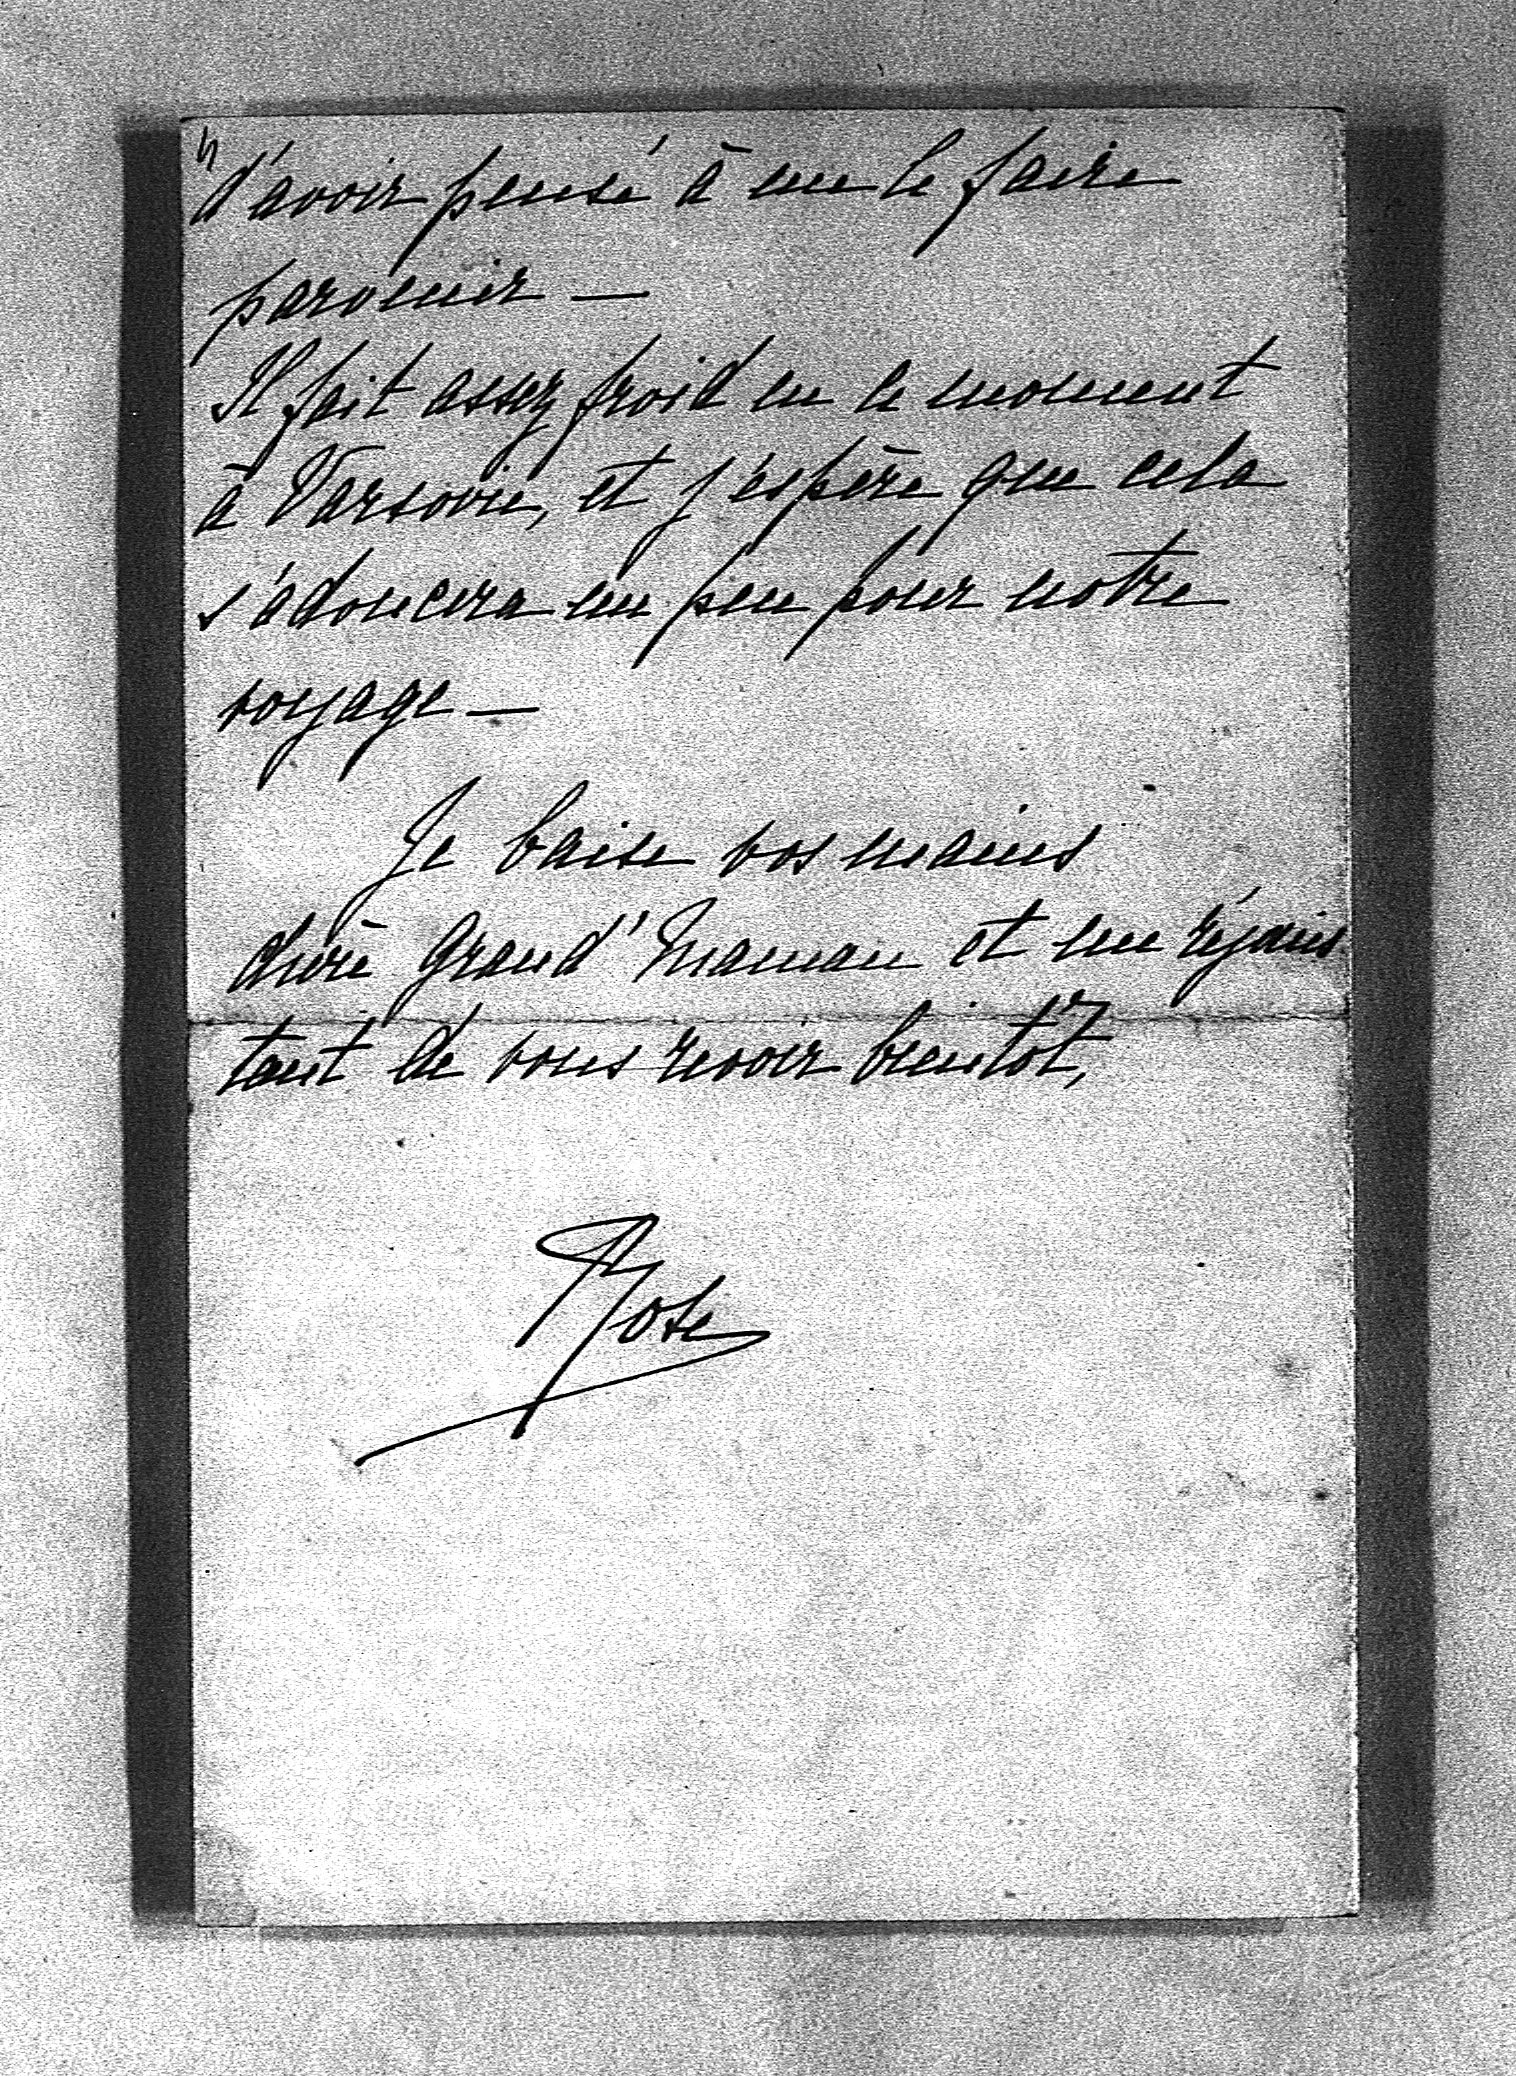 d'avoir pensé à me le faire
parvenir —
Il fait assez froid en ce moment
à Varsovie, et j'espère que cela
s'adoucira un peu pour notre
voyage —
Je baise vos mains
chère Grand'Maman et me réjouis
tant de vous revoir bientôt,
Rose